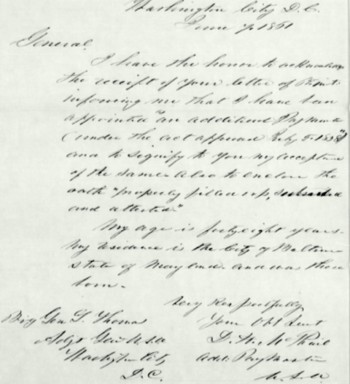 Washington City D.C.
June 7 1861
General
I have the honor to acknowledge
the receipt of your letter of
informing me that I have been
appointed an additional Paymaster
(under the act approved July 5 1838)
and to signify to you my acceptance
of the same. Also to enclose the
oath "properly filled up,
and attested"
My age is forty eight years
My residence is the City of Baltimore
State of Maryland and was there
born.
Very Respectfully
Brig Gen L Thomas
Your Obt Servt
Adjt Genl U.S.A.
Washington City
Addl. Paymaster
D.C.
U.S.A.